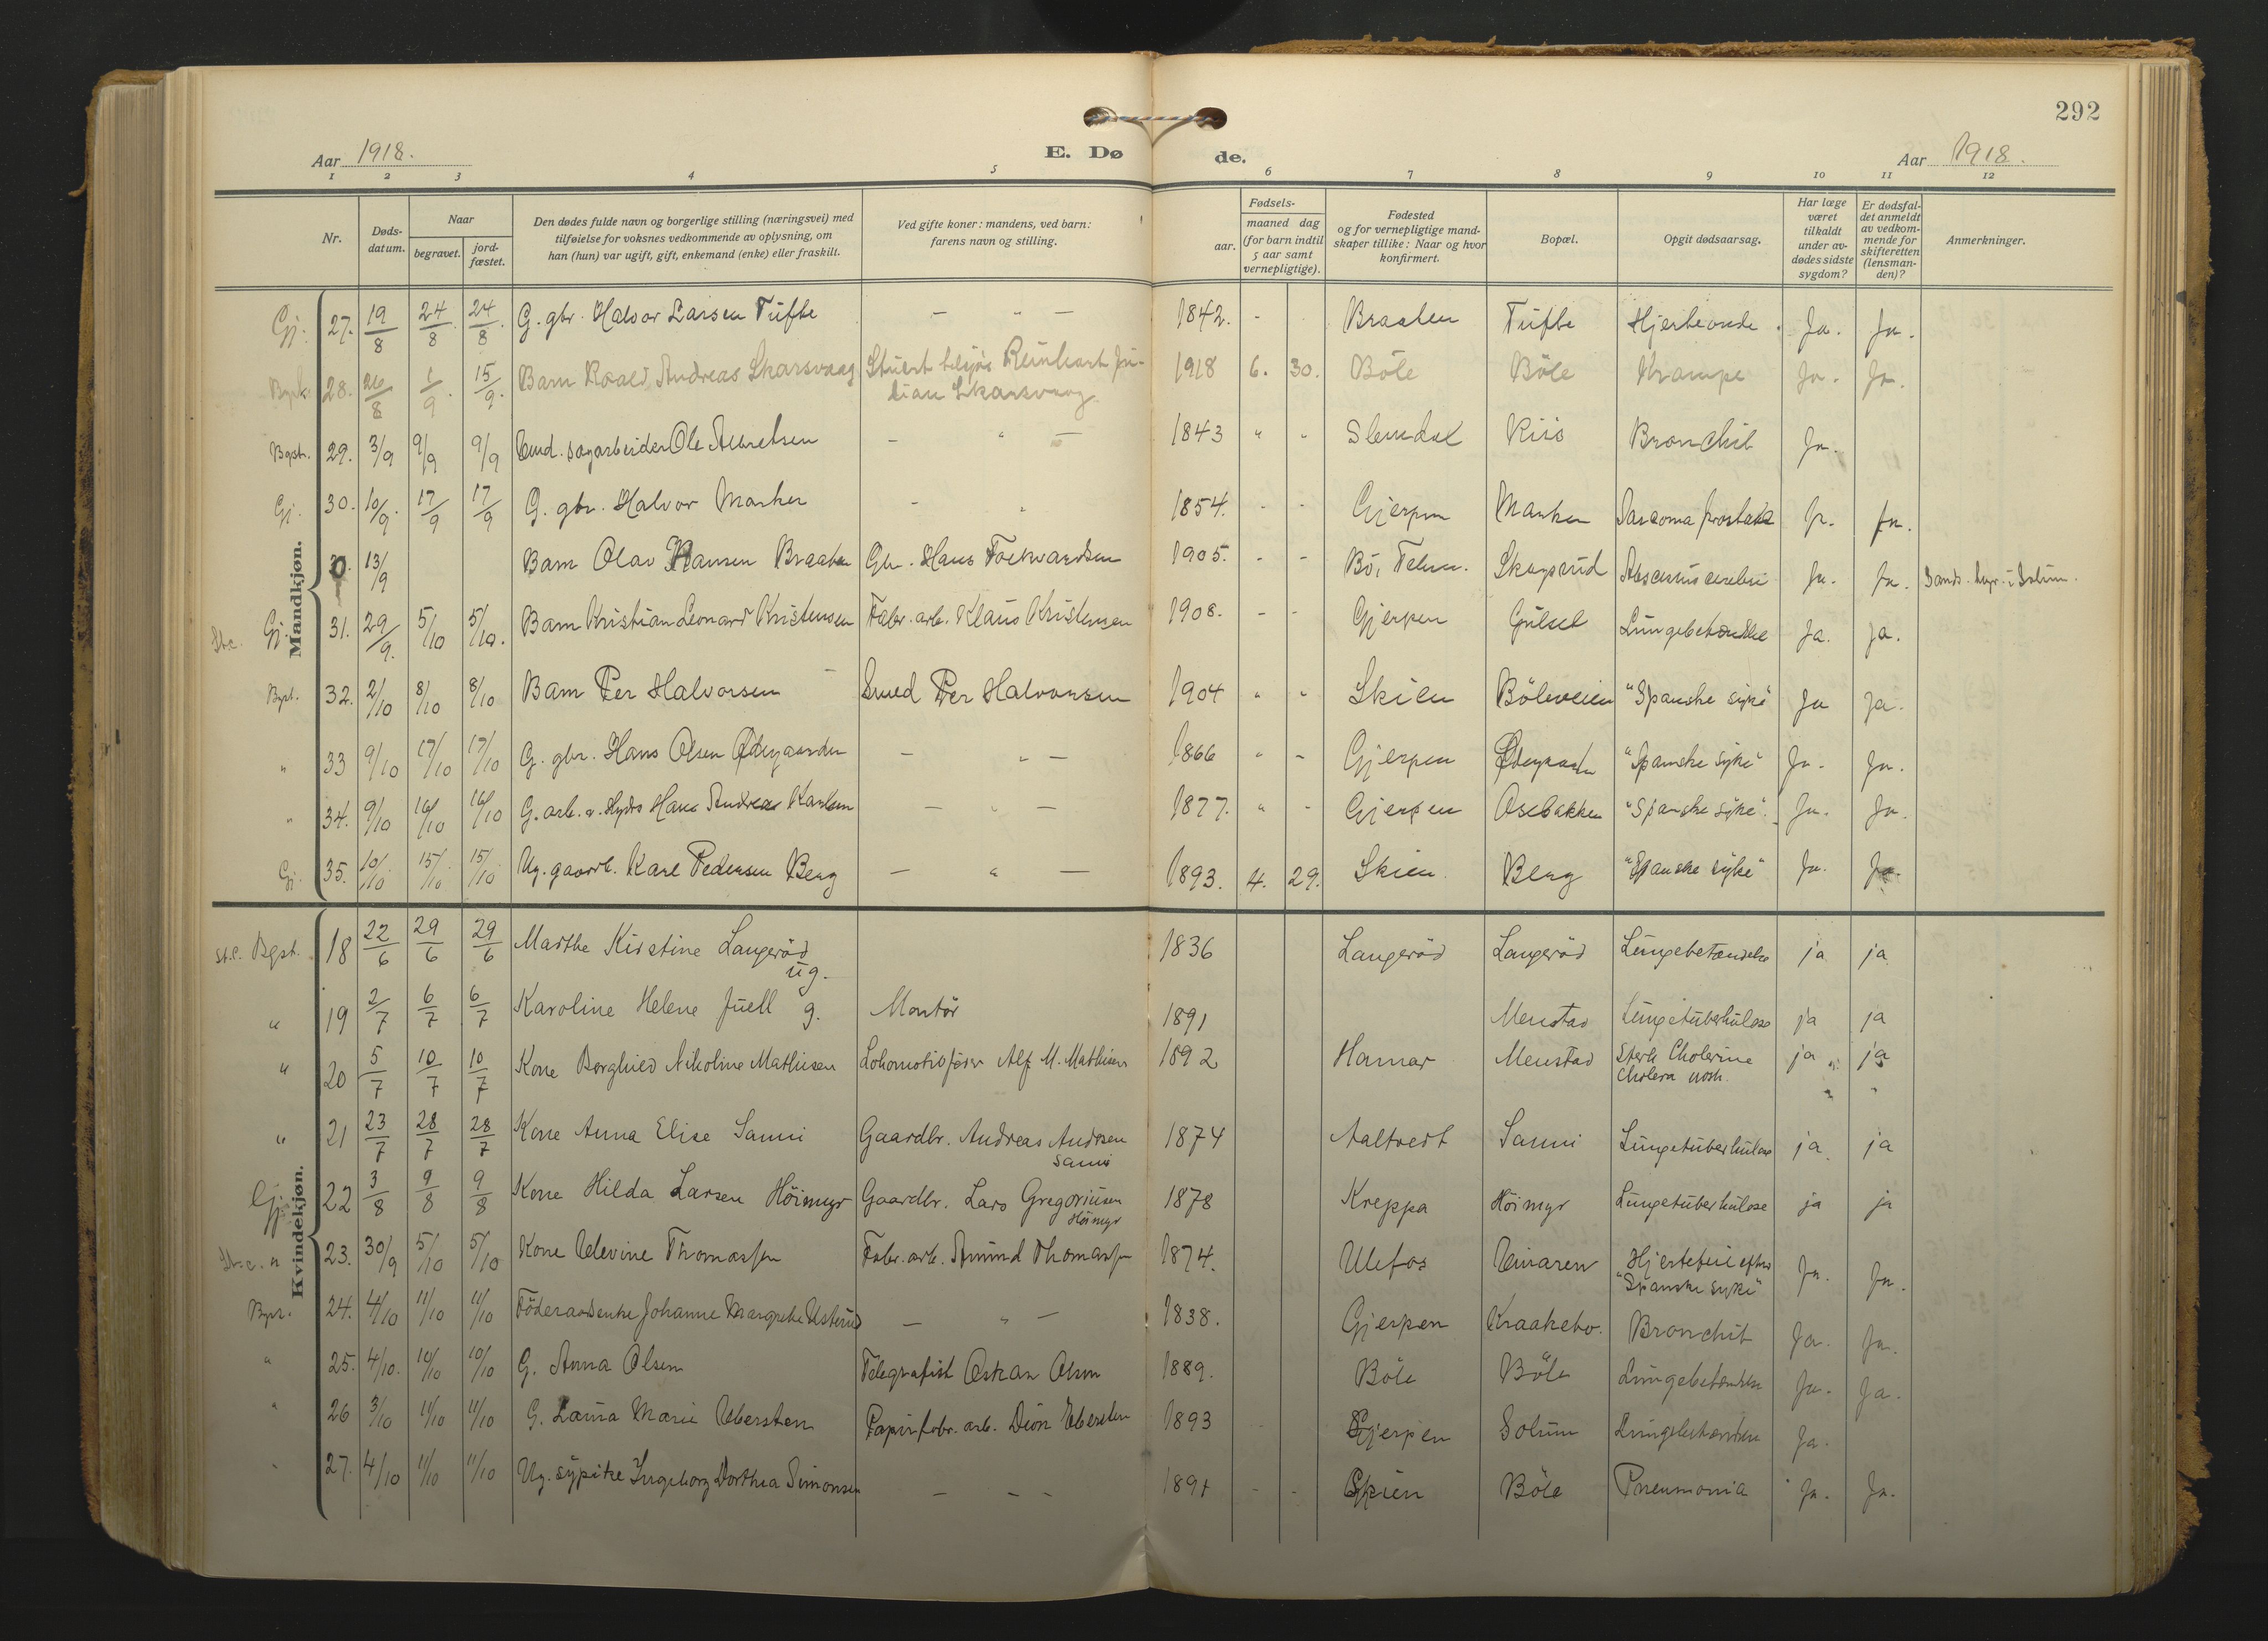 292
Aar 1918.
E. Døde.
Aar 1918.
1 2 3 4 5 6 7 8 9 10 11 12
Nr.
Døds-datum.
Naar
begravet.
jord-fæstet.
Den dødes fulde navn og borgerlige stilling (næringsvei) med
tilføielse for voksnes vedkommende av oplysning, om
han (hun) var ugift, gift, enkemand (enke) eller fraskilt.
Ved gifte koner: mandens, ved barn:
farens navn og stilling.
Fødsels-
aar.
maaned dag
(for barn indtil
5 aar samt
vernepligtige).
Fødested
og for vernepligtige mand-
skaper tillike: Naar og hvor
konfirmert.
Bopæl.
Opgit dødsaarsag.
Har læge
været
tilkaldt
under av-
dødes sidste
sygdom?
Er dødsfal-
det anmeldt
av vedkom-
mende for
skifteretten
(lensman-
den)?
Anmerkninger.
Mandkjøn.
Gj. 27. 19/8 24/8. 24/8. G. gbr. Halvor Larsen Tufte — " — 1842. - Braaten Tufte Hjerteonde. Ja. Ja.
28. 26/8 1/9. 15/9. Barn Roald Andreas Skarsvaag Reinhart Ju-
lian Skarsvaag 1918 6. 30. Böle Böle Krampe Ja. Ja.
Bgst. 29. 3/9 9/9 9/9 sagarbeider Ole - " — 1843 " - Slemdal Riis Bronchit Ja.
Gj. 30. 10/9. 17/9 17/9 G. gbr. Halvor Marker - " 1854. - - Gjerpen Marker Sarcoma prostata Ja. Ja.
13/9 Barn Olav Hansen Braaten Gbr. Hans 1905. - - Bö, Telem. Abscessus cerebri Ja. Ja. i Solum.
Gj. 31. 29/9. 5/10 5/10. Barn Kristian Leonard Kristensen Fabr. arb. Klaus Kristensen 1908. - - Gjerpen Gulset Lungebetændelse Ja. Ja.
32. 2/10 8/10 8/10 Barn Per Halvorsen Smed Per Halvorsen 1904 " " Skien Böleveien "Spanske syke" Ja Ja.
" 33 9/10 17/10 17/10 G. gbr. Hans Olsen Ødegaarden — " — 1866 " - Gjerpen Ødegaarden "Spanske syke" Ja. Ja.
" 34. 9/10 16/10 16/10 G. arb. Hans Andreas Karlsen — " — 1877. " - Gjerpen Osebakken "Spanske syke". Ja. Ja.
Gj. 35. 10/10 15/10 15/10 Ug. gaardb. Karl Pedersen Berg — " — 1893. 4. 29. Skien Berg "Spanske syke" Ja. Ja.
Kvindekjøn.
St.c. Bgst. 18 22/6 29/6 29/6 Marthe Kirstine Langeröd
ug. 1836 Langeröd Langeröd Lungebetændelse ja ja
" 19 2/7 6/7 6/7 Karoline Helene Juell g. Montör 1891 Menstad Lungetuberkulose ja ja
" 20 5/7 10/7 10/7 Kone Borghild Nikoline Mathisen Lokomotivförer Alf M. Mathisen 1892 Hamar Menstad Sterk Cholerine
Cholera nostr. ja ja
" 21 23/7 28/7 28/7 Kone Anna Elise Sanni Gaardbr. Andreas Andrsen
Sanni 1874 Aaltvedt Sanni Lungetuberkulose ja ja
Gj. 22 3/8 9/8 9/8 Kone Hilda Larsen Höimyr Gaardbr. Lars Gregoriusen
Höimyr 1878 Kreppa Höimyr Lungetuberkulose ja ja
St.c. " 23. 30/9 5/10 5/10 Kone Thomassen Fabr. arb. Amund Thomassen 1874. Ulefos Hjertefeil efter
"Spanske syke" Ja. Ja.
24. 4/10 11/10 11/10 Föderaadsenke Johanne Margrethe — " — 1838. Gjerpen Kraakebo. Bronchit Ja. Ja.
" 25. 4/10. 10/10 10/10 G. Anna Olsen Telegrafist Oskar Olsen 1889. Böle Böle Lungebetændelse Ja. Ja.
" 26 3/10 11/10 11/10 G. Laura Marie Ebersten Papirfabr. arb. Ebersten 1893 Gjerpen Solum Lungebetændelse Ja.
" 27. 4/10 11/10 11/10 Ug. sypike Ingeborg Dorthea Simonsen — - - 1891 - - Skien Böle Pneumonia Ja. Ja.